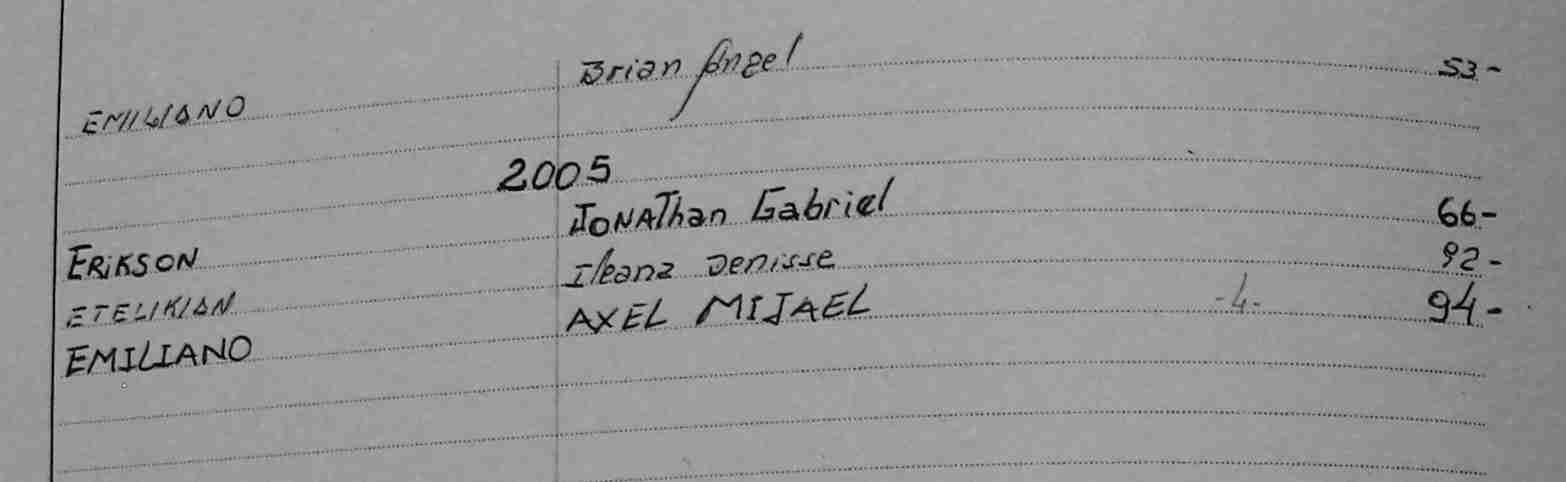 EMILIANO Brian Angel 53-
2005
ERIKSON JONAThan Gabriel 66-
ETELIKIAN Ileana Denisse 92-
EMILIANO AXEL MIJAEL -4- 94-